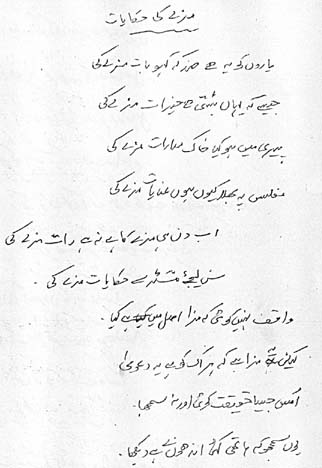 مزے کی حکایات
یاروں کی یہ ہے ضد کہ کہو بات مزے کی
جیسے کہ یہاں بٹتی ہے خیرات مزے کی
پیری میں ہو کیا خاک مدارات مزے کی
مفلس پہ بھلا کیوں ہوں عنایات مزے کی
اب دن ہی مزے کا ہے نہ ہے رات مزے کی
سن لیجئے مشہور ہے حکایات مزے کی
واقف نہیں کوئی کہ مزا اصل میں ہے کیا
لیکن مزا ہے کہ ہر اک کو ہے یہ دعویٰ
اس جیسا حقیقت کوئی اور نہ سمجھا
یوں سمجھو کہ ہاتھی کوئی اندھوں نے ہے دیکھا